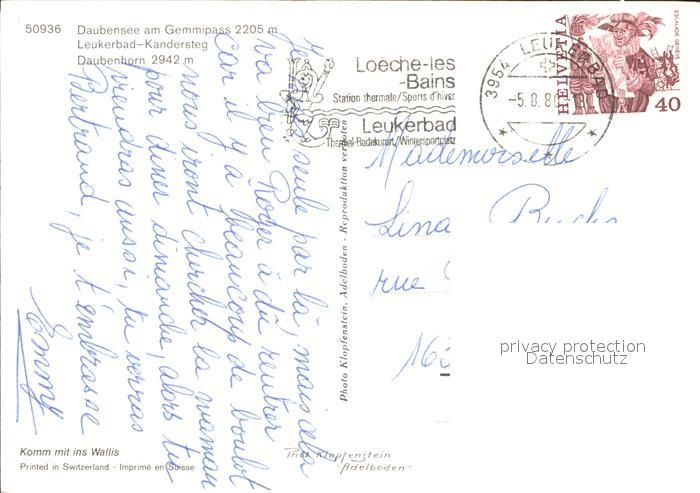 50936 Daubensee am Gemmipass 2205 m
Leukerbad–Kandersteg
Daubenhorn 2942 m
Loèche-les
-Bains
Station thermale/Sports d'hiver
Leukerbad
Thermal-Badekurort/Wintersportplatz
3954 LEUKERBAD
-5.8.80
HELVETIA
ESCALADE GENEVE
40
Je suis seule par là, mais cela
va bien Roger a dû rentrer
car il y a beaucoup de boulot
nous iront chercher la maman
pour diner dimanche, alors tu
viendras aussi, tu verras
Bertrand, je t'embrasse
Emmy
Photo Klopfenstein, Adelboden - Reproduktion verboten
Mademoiselle
Lina
rue
163
privacy protection
Datenschutz
Komm mit ins Wallis
Printed in Switzerland - Imprimé en Suisse
Phot Klopfenstein
-Adelboden-